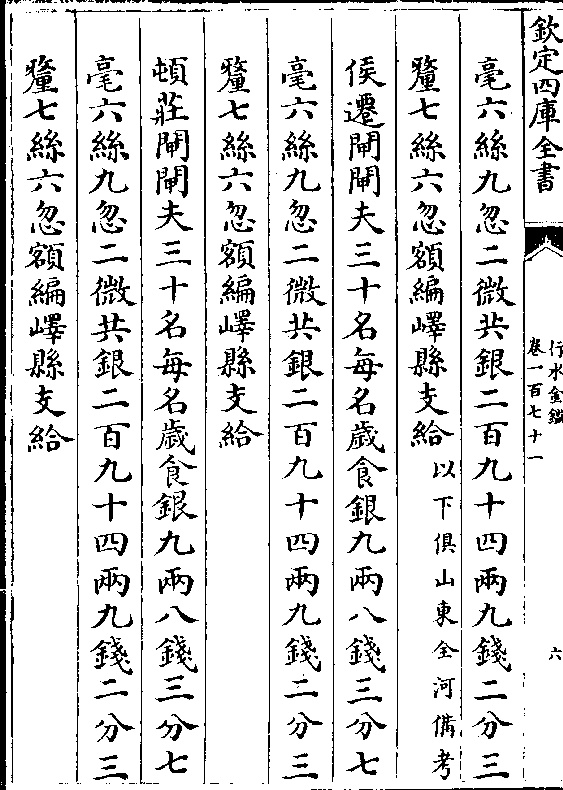 欽定四庫全書
行水金鑑
卷一百七十一
六
毫六絲九忽二微共銀二百九十四兩九錢二分三
釐七絲六忽額編嶧縣支給以下俱山東全河備考
侯遷閘閘夫三十名每名歲食銀九兩八錢三分七
毫六絲九忽二微共銀二百九十四兩九錢二分三
釐七絲六忽額編嶧縣支給
頓莊閘閘夫三十名每名歲食銀九兩八錢三分七
毫六絲九忽二微共銀二百九十四兩九錢二分三
釐七絲六忽額編嶧縣支給